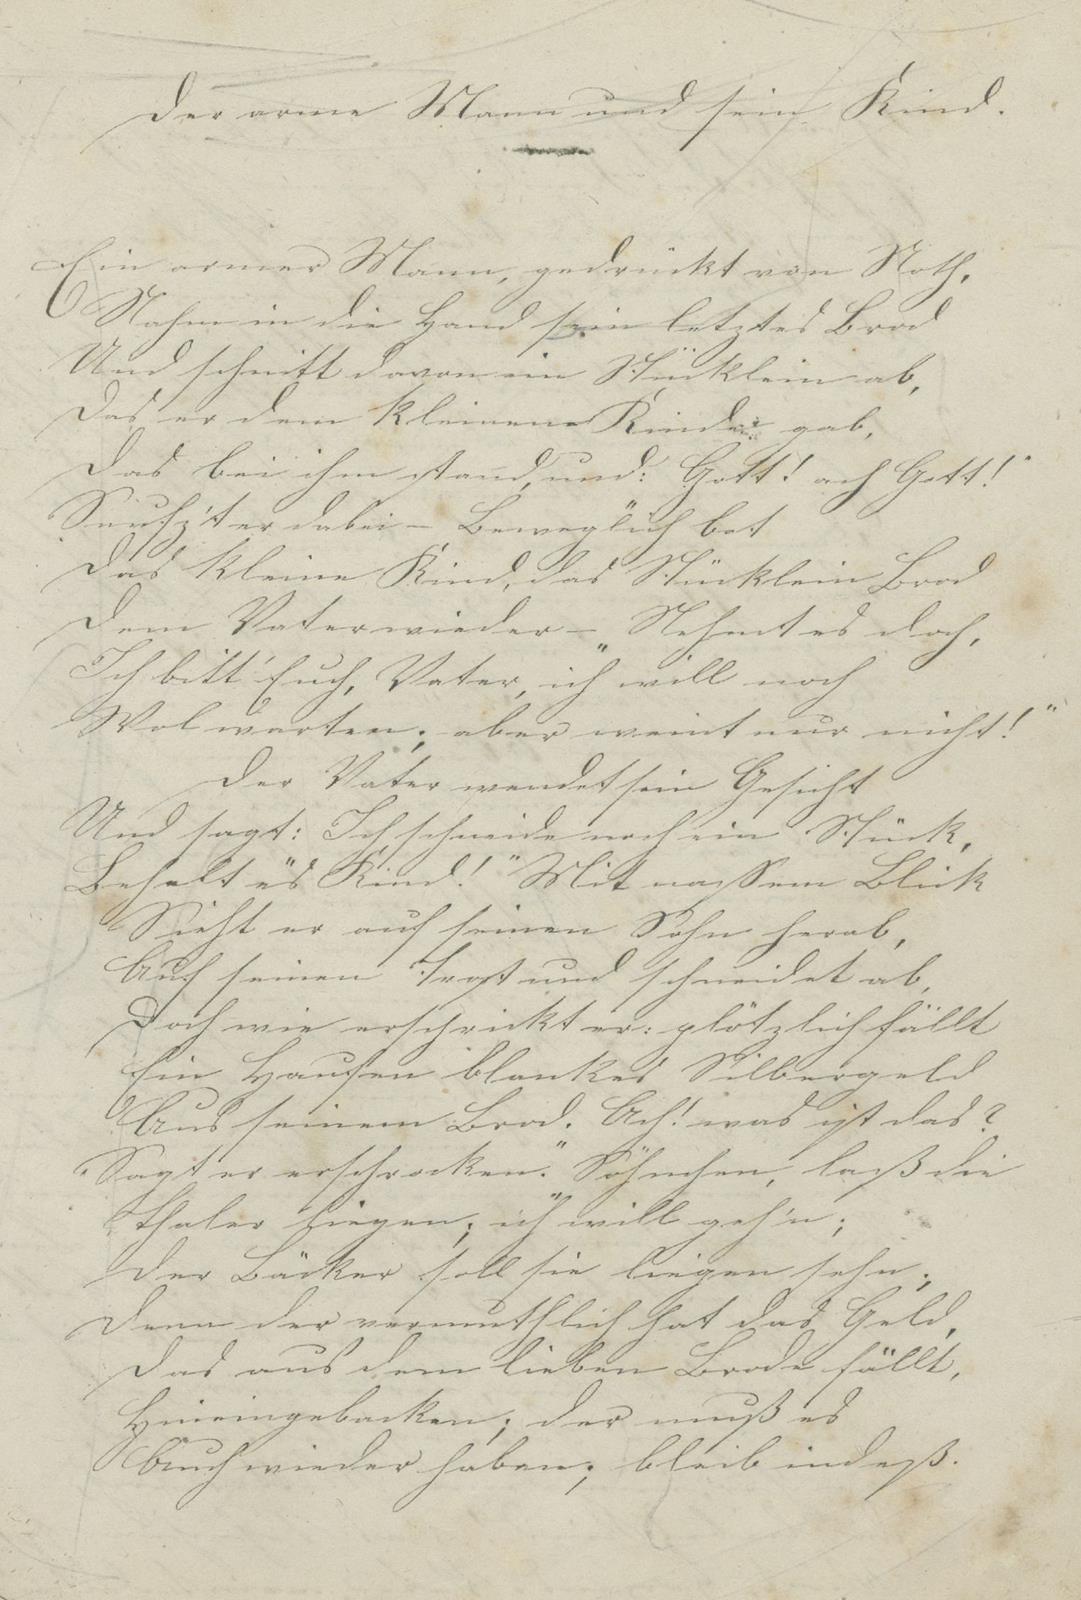 Der arme Mann und sein Kind.
Ein armer Mann, gedrückt von Noth,
Nahm in die Hand sein letztes Brod
Und schnitt davon ein Stücklein ab,
Das er dem kleinen Kinde gab,
Das bei ihm stand, und: Gott! ach Gott!"
Seufz't er dabei – Beweglich bot
Das kleine Kind, das Stücklein Brod
Dem Vater wieder – „Nehmt es doch,
Ich bitt' Euch, Vater, ich will noch
Wol warten; aber weint nur nicht!"
Der Vater wendet sein Gesicht
Und sagt: Ich schneide noch ein Stück,
Behalt es Kind!" Mit nassem Blick
Sieht er auf seinen Sohn herab,
Auf seinen Trost und schneidet ab,
Doch wie erschrickt er: plötzlich fällt
Ein Haufen blankes Silbergeld
Aus seinem Brod. Ach! was ist das?
Sagt er erschrocken." Söhnchen, laß die
Thaler liegen; ich will geh'n;
Der Bäcker soll sie liegen sehn;
Denn der vermuthlich hat das Geld,
Das aus dem lieben Brode fällt,
Hineingebacken; der muß es
Auch wieder haben; bleib indeß.